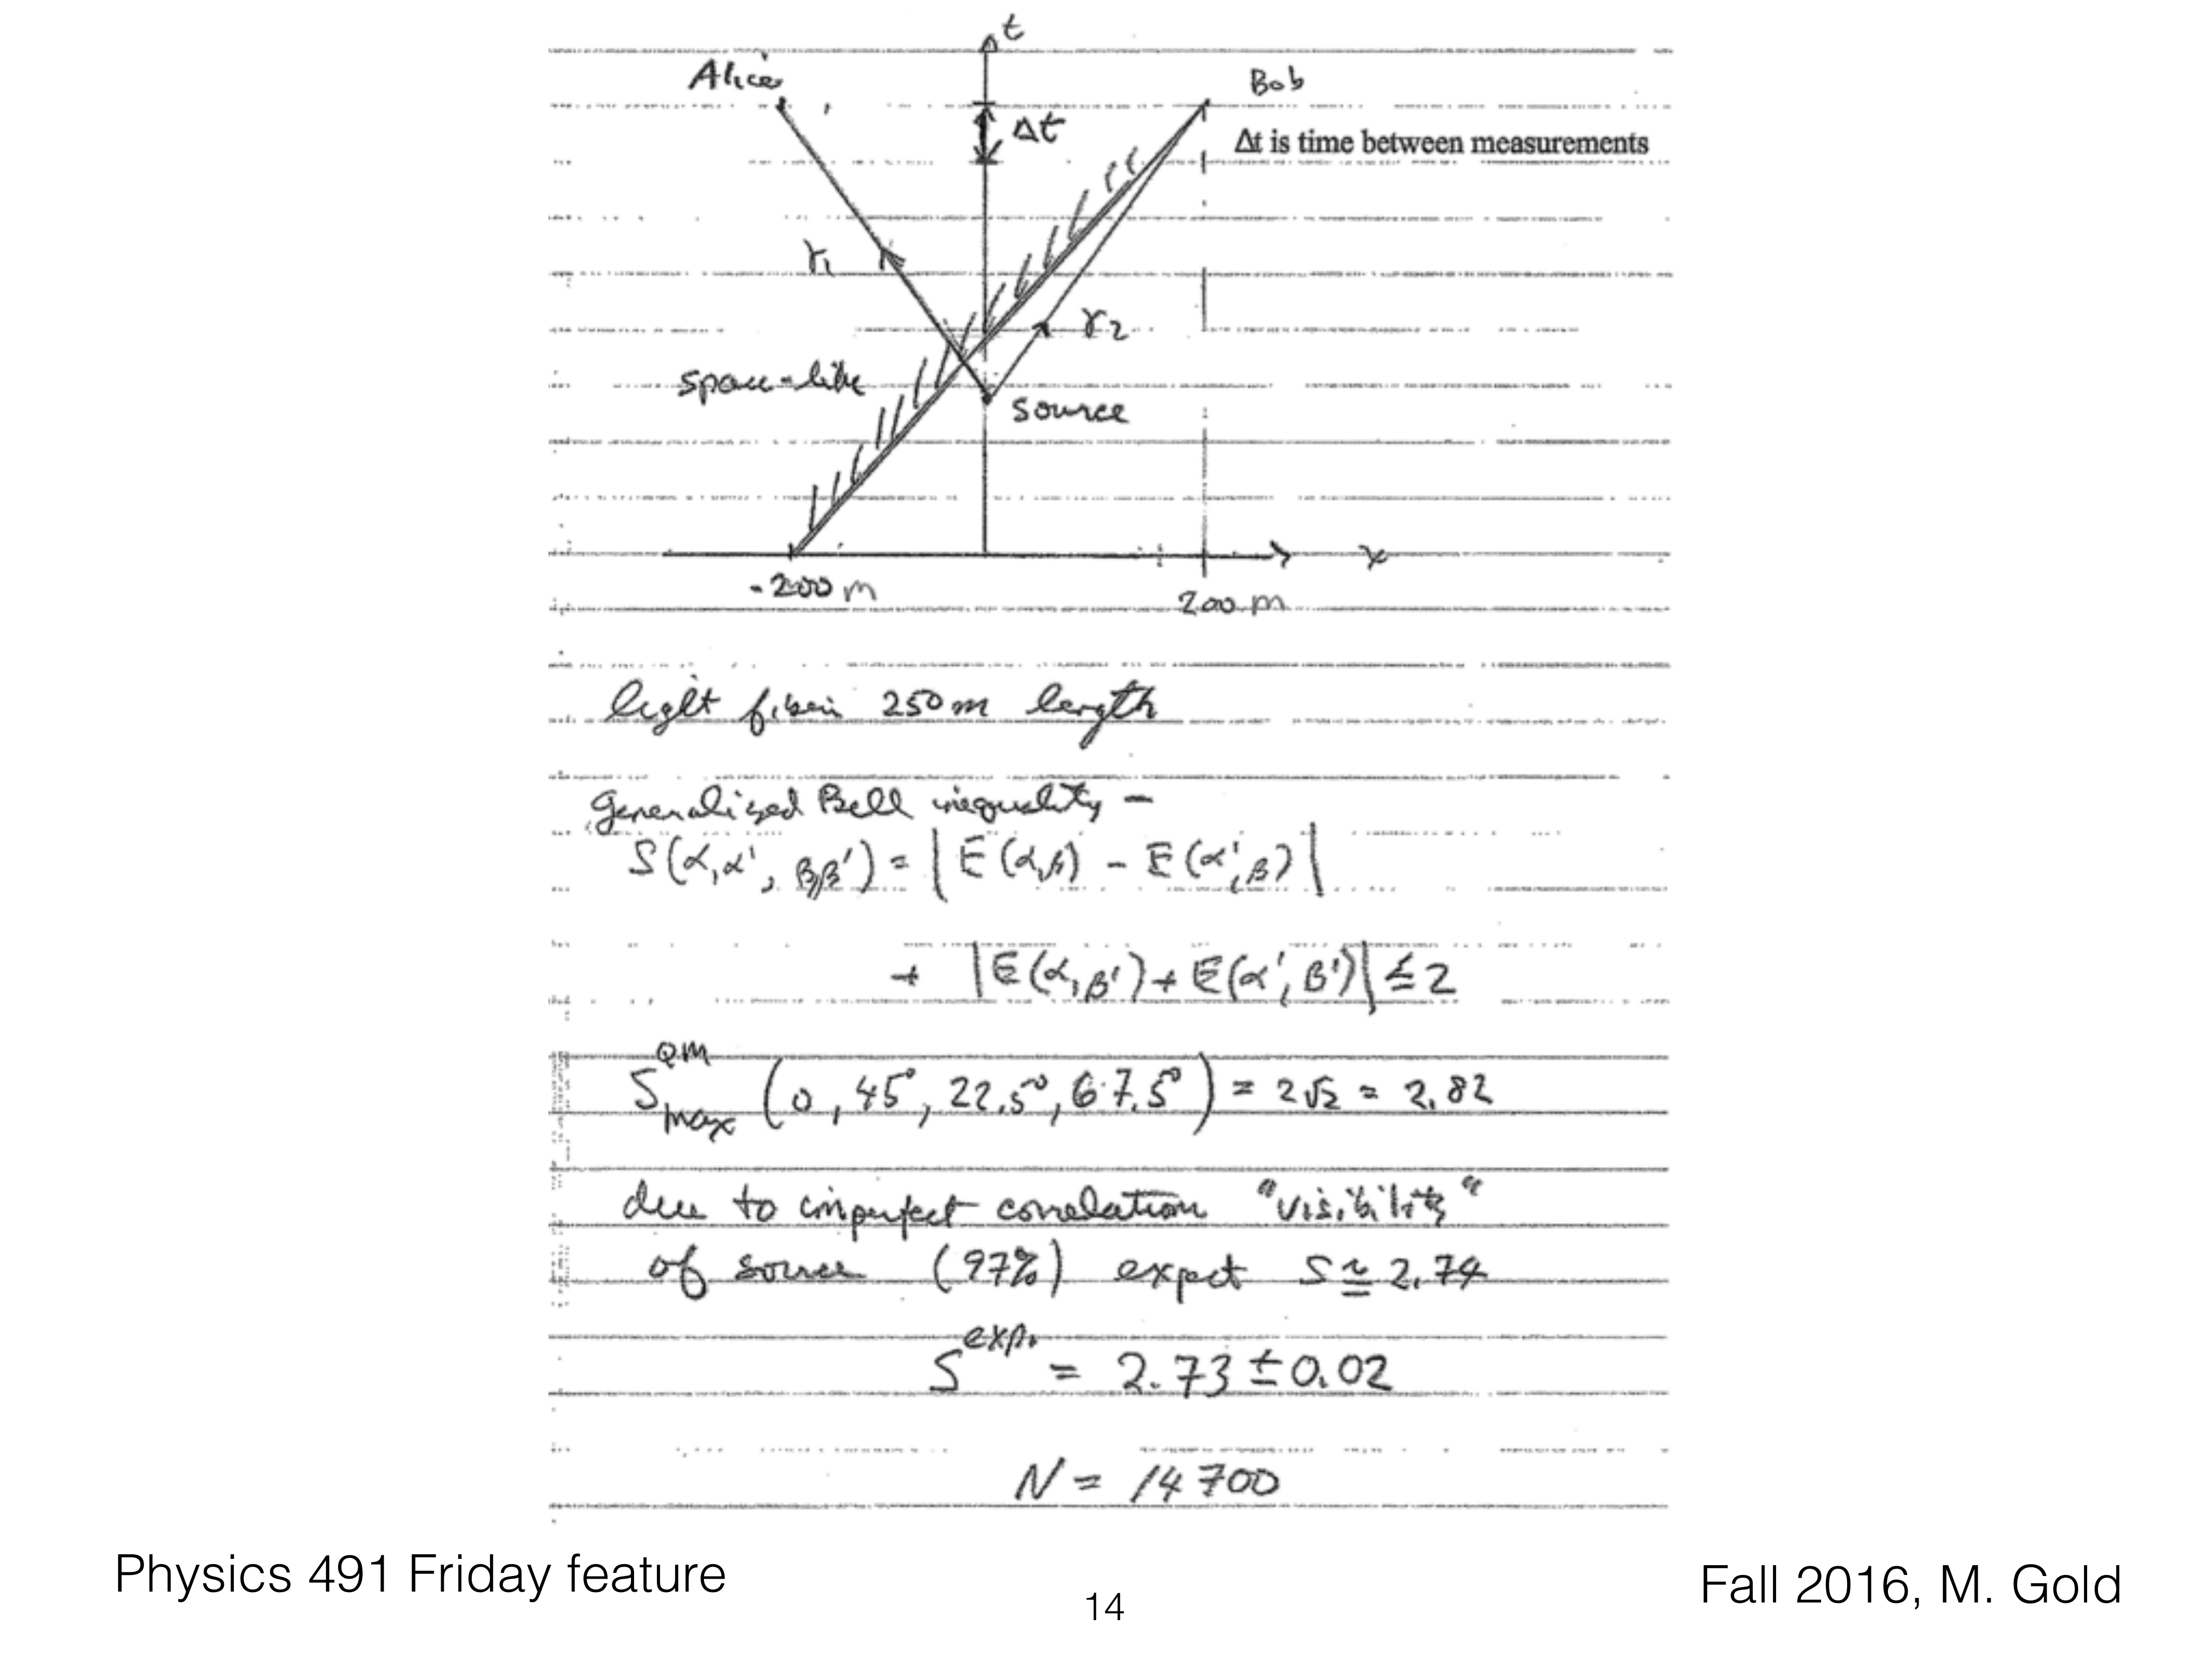 t
Alice
Bob
Δt
Δt is time between measurements
γ₁
γ₂
space-like
source
x
-200 m
200 m
light fibers 250 m length
Generalized Bell inequality -
S(α,α', β,β') = | E(α,β) - E(α',β) |
+ | E(α,β') + E(α',β') | ≤ 2
S^QM_max (0, 45°, 22.5°, 67.5°) = 2√2 = 2.82
due to imperfect correlation "visibility"
of source (97%) expect S ≃ 2.74
S^exp. = 2.73 ± 0.02
N = 14700
Physics 491 Friday feature
14
Fall 2016, M. Gold